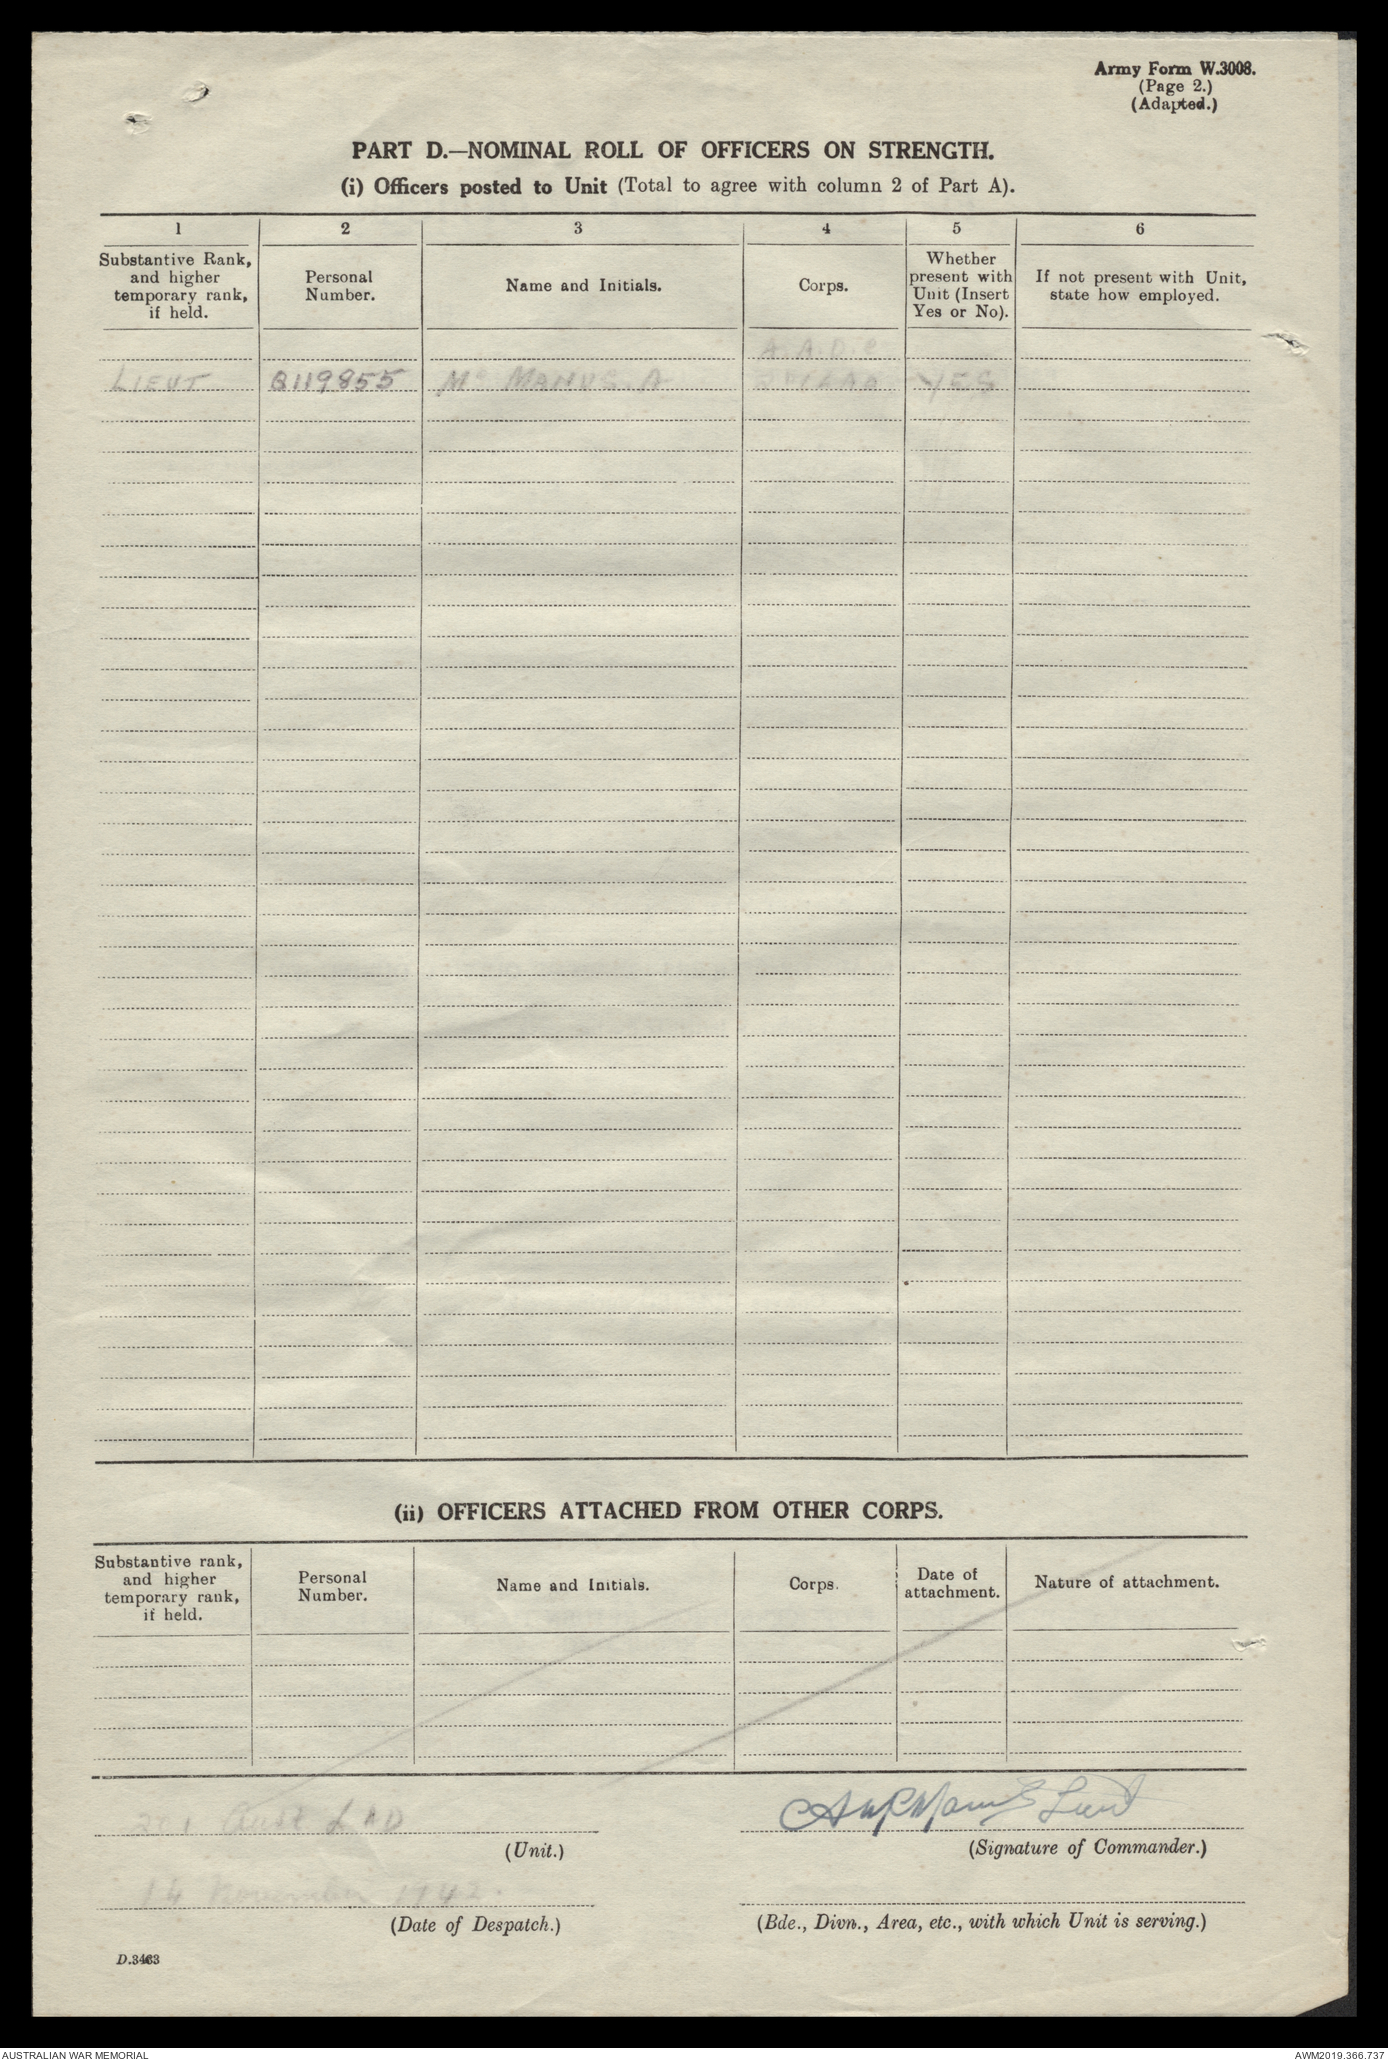 Army Form W.3008.
(Page 2.)
(Adapted.)
PART D.—NOMINAL ROLL OF OFFICERS ON STRENGTH.
(i) Officers posted to Unit (Total to agree with column 2 of Part A).
1 2 3 4 5 6
Substantive Rank, and higher temporary rank, if held.
Personal Number.
Name and Initials.
Corps.
Whether present with Unit (Insert Yes or No).
If not present with Unit, state how employed.
LIEUT B119855 Mc MANUS. A YES
(ii) OFFICERS ATTACHED FROM OTHER CORPS.
Substantive rank, and higher temporary rank, if held.
Personal Number.
Name and Initials.
Corps.
Date of attachment.
Nature of attachment.
Aust LAD
Lieut
(Unit.)
(Signature of Commander.)
14 November 1942.
(Date of Despatch.)
(Bde., Divn., Area, etc., with which Unit is serving.)
D.3463
AUSTRALIAN WAR MEMORIAL
AWM2019.366.737